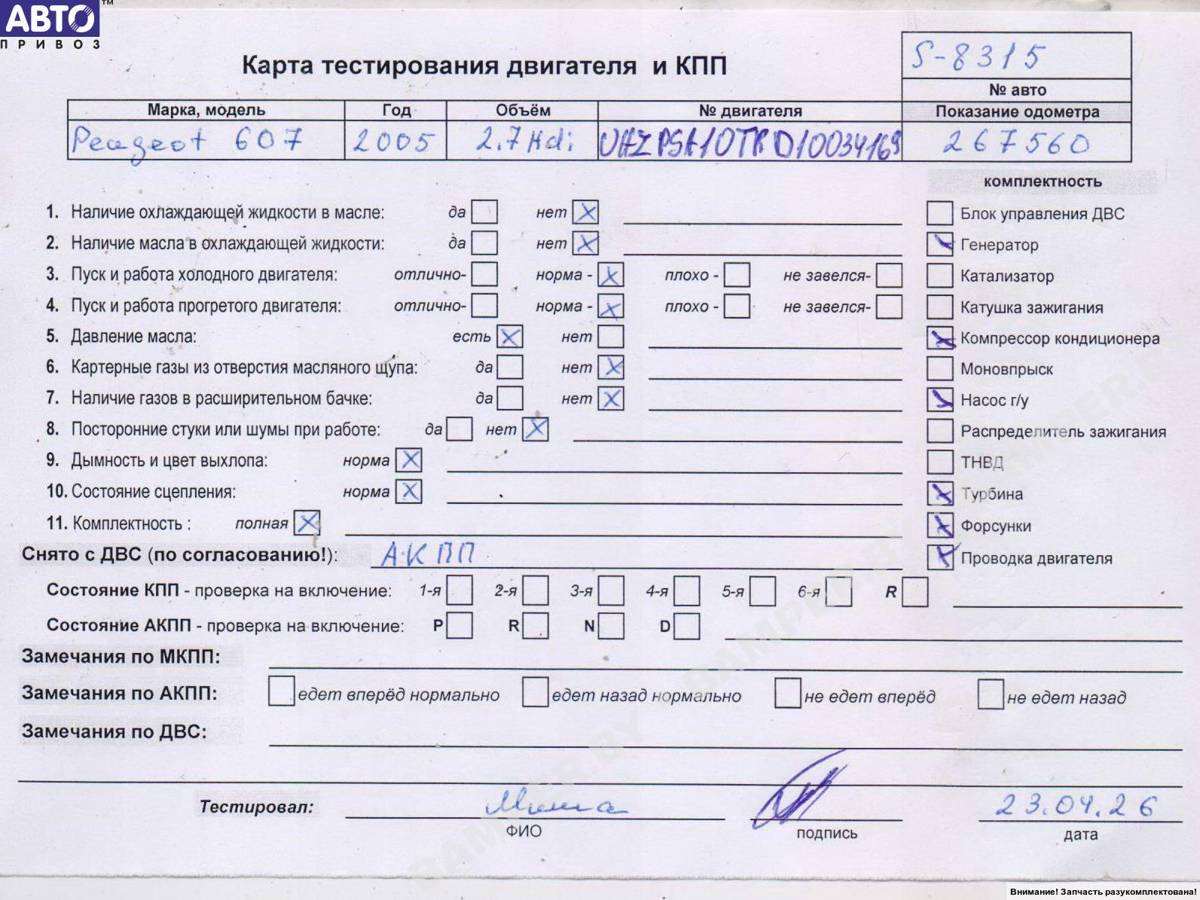 АВТО™
ПРИВОЗ
Карта тестирования двигателя и КПП
S-8315
№ авто
Марка, модель Год Объём № двигателя Показание одометра
Peageot 607 2005 2.7 Hdi 267560
комплектность
1. Наличие охлаждающей жидкости в масле: да нет Блок управления ДВС
2. Наличие масла в охлаждающей жидкости: да нет Генератор
3. Пуск и работа холодного двигателя: отлично- норма - плохо - не завелся- Катализатор
4. Пуск и работа прогретого двигателя: отлично- норма - плохо - не завелся- Катушка зажигания
5. Давление масла: есть нет Компрессор кондиционера
6. Картерные газы из отверстия масляного щупа: да нет Моновпрыск
7. Наличие газов в расширительном бачке: да нет Насос г/у
8. Посторонние стуки или шумы при работе: да нет Распределитель зажигания
9. Дымность и цвет выхлопа: норма ТНВД
10. Состояние сцепления: норма Турбина
11. Комплектность : полная Форсунки
Снято с ДВС (по согласованию!): АКПП Проводка двигателя
Состояние КПП - проверка на включение: 1-я 2-я 3-я 4-я 5-я 6-я R
Состояние АКПП - проверка на включение: P R N D
Замечания по МКПП:
Замечания по АКПП: едет вперёд нормально едет назад нормально не едет вперёд не едет назад
Замечания по ДВС:
Тестировал: Миша 23.04.26
ФИО подпись дата
BAMPER.BY
Внимание! Запчасть разукомплектована!